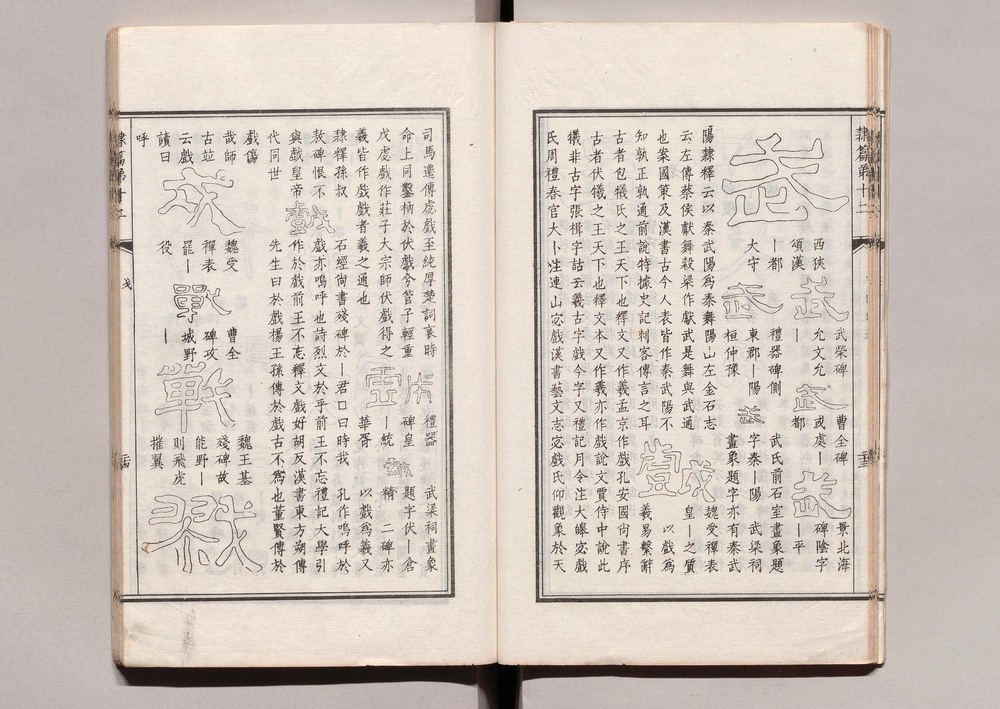 隸篇第十二
武
西狹
頌漢
｜都
大守
武
武榮碑
允文允
｜
武
曹全碑
或處｜
都
武
景北海
碑陰字
｜平
武
禮器碑側
東郡｜陽
桓仲豫
武
武氏前石室畫象題
字秦｜陽 武梁祠
畫象題字亦有秦武
陽隸釋云以秦武陽爲秦舞陽山左金石志
云左傳蔡侯獻舞穀梁作獻武是舞與武通
也案國策及漢書古今人表皆作秦武陽不
知孰正孰通前說特據史記刺客傳言之耳
戲
魏受禪表
皇｜之質
以戲爲
羲易繫辭
古者包犧氏之王天下也釋文又作羲孟京作戲孔安國尚書序
古者伏犧之王天下也釋文本又作羲亦作戲說文賈侍中說此
犧非古字張揖字詁云羲古字戲今字又禮記月令注大皞宓戲
氏周禮春官大卜注連山宓戲漢書藝文志宓戲氏仰觀象於天
司馬遷傳虙戲至純厚楚詞哀時
命上同鑿枘於伏戲兮管子輕重
戊虙戲作莊子大宗師伏戲得之
羲皆作戲戲者羲之通也
戲
禮器
碑皇
｜統
華胥
戲
武梁祠畫象
題字伏｜倉
精 二碑亦
以戲爲羲又
隸釋孫叔
敖碑恨不
與戲皇帝
代同世
戲
石經尚書殘碑於｜君口曰時我 孔作嗚呼於
戲亦嗚呼也詩烈文於乎前王不忘禮記大學引
作於戲前王不忘釋文戲好胡反漢書東方朔傳
先生曰於戲揚王孫傳於戲古不爲也董賢傳於
戲傷
哉師
古竝
云戲
讀曰
呼
戏
魏受
禪表
罷｜
役
戰
曹全
碑攻
城野
｜
戰
魏王基
殘碑故
能野｜
則飛虎
摧翼
戮
隸篇第十二
戈